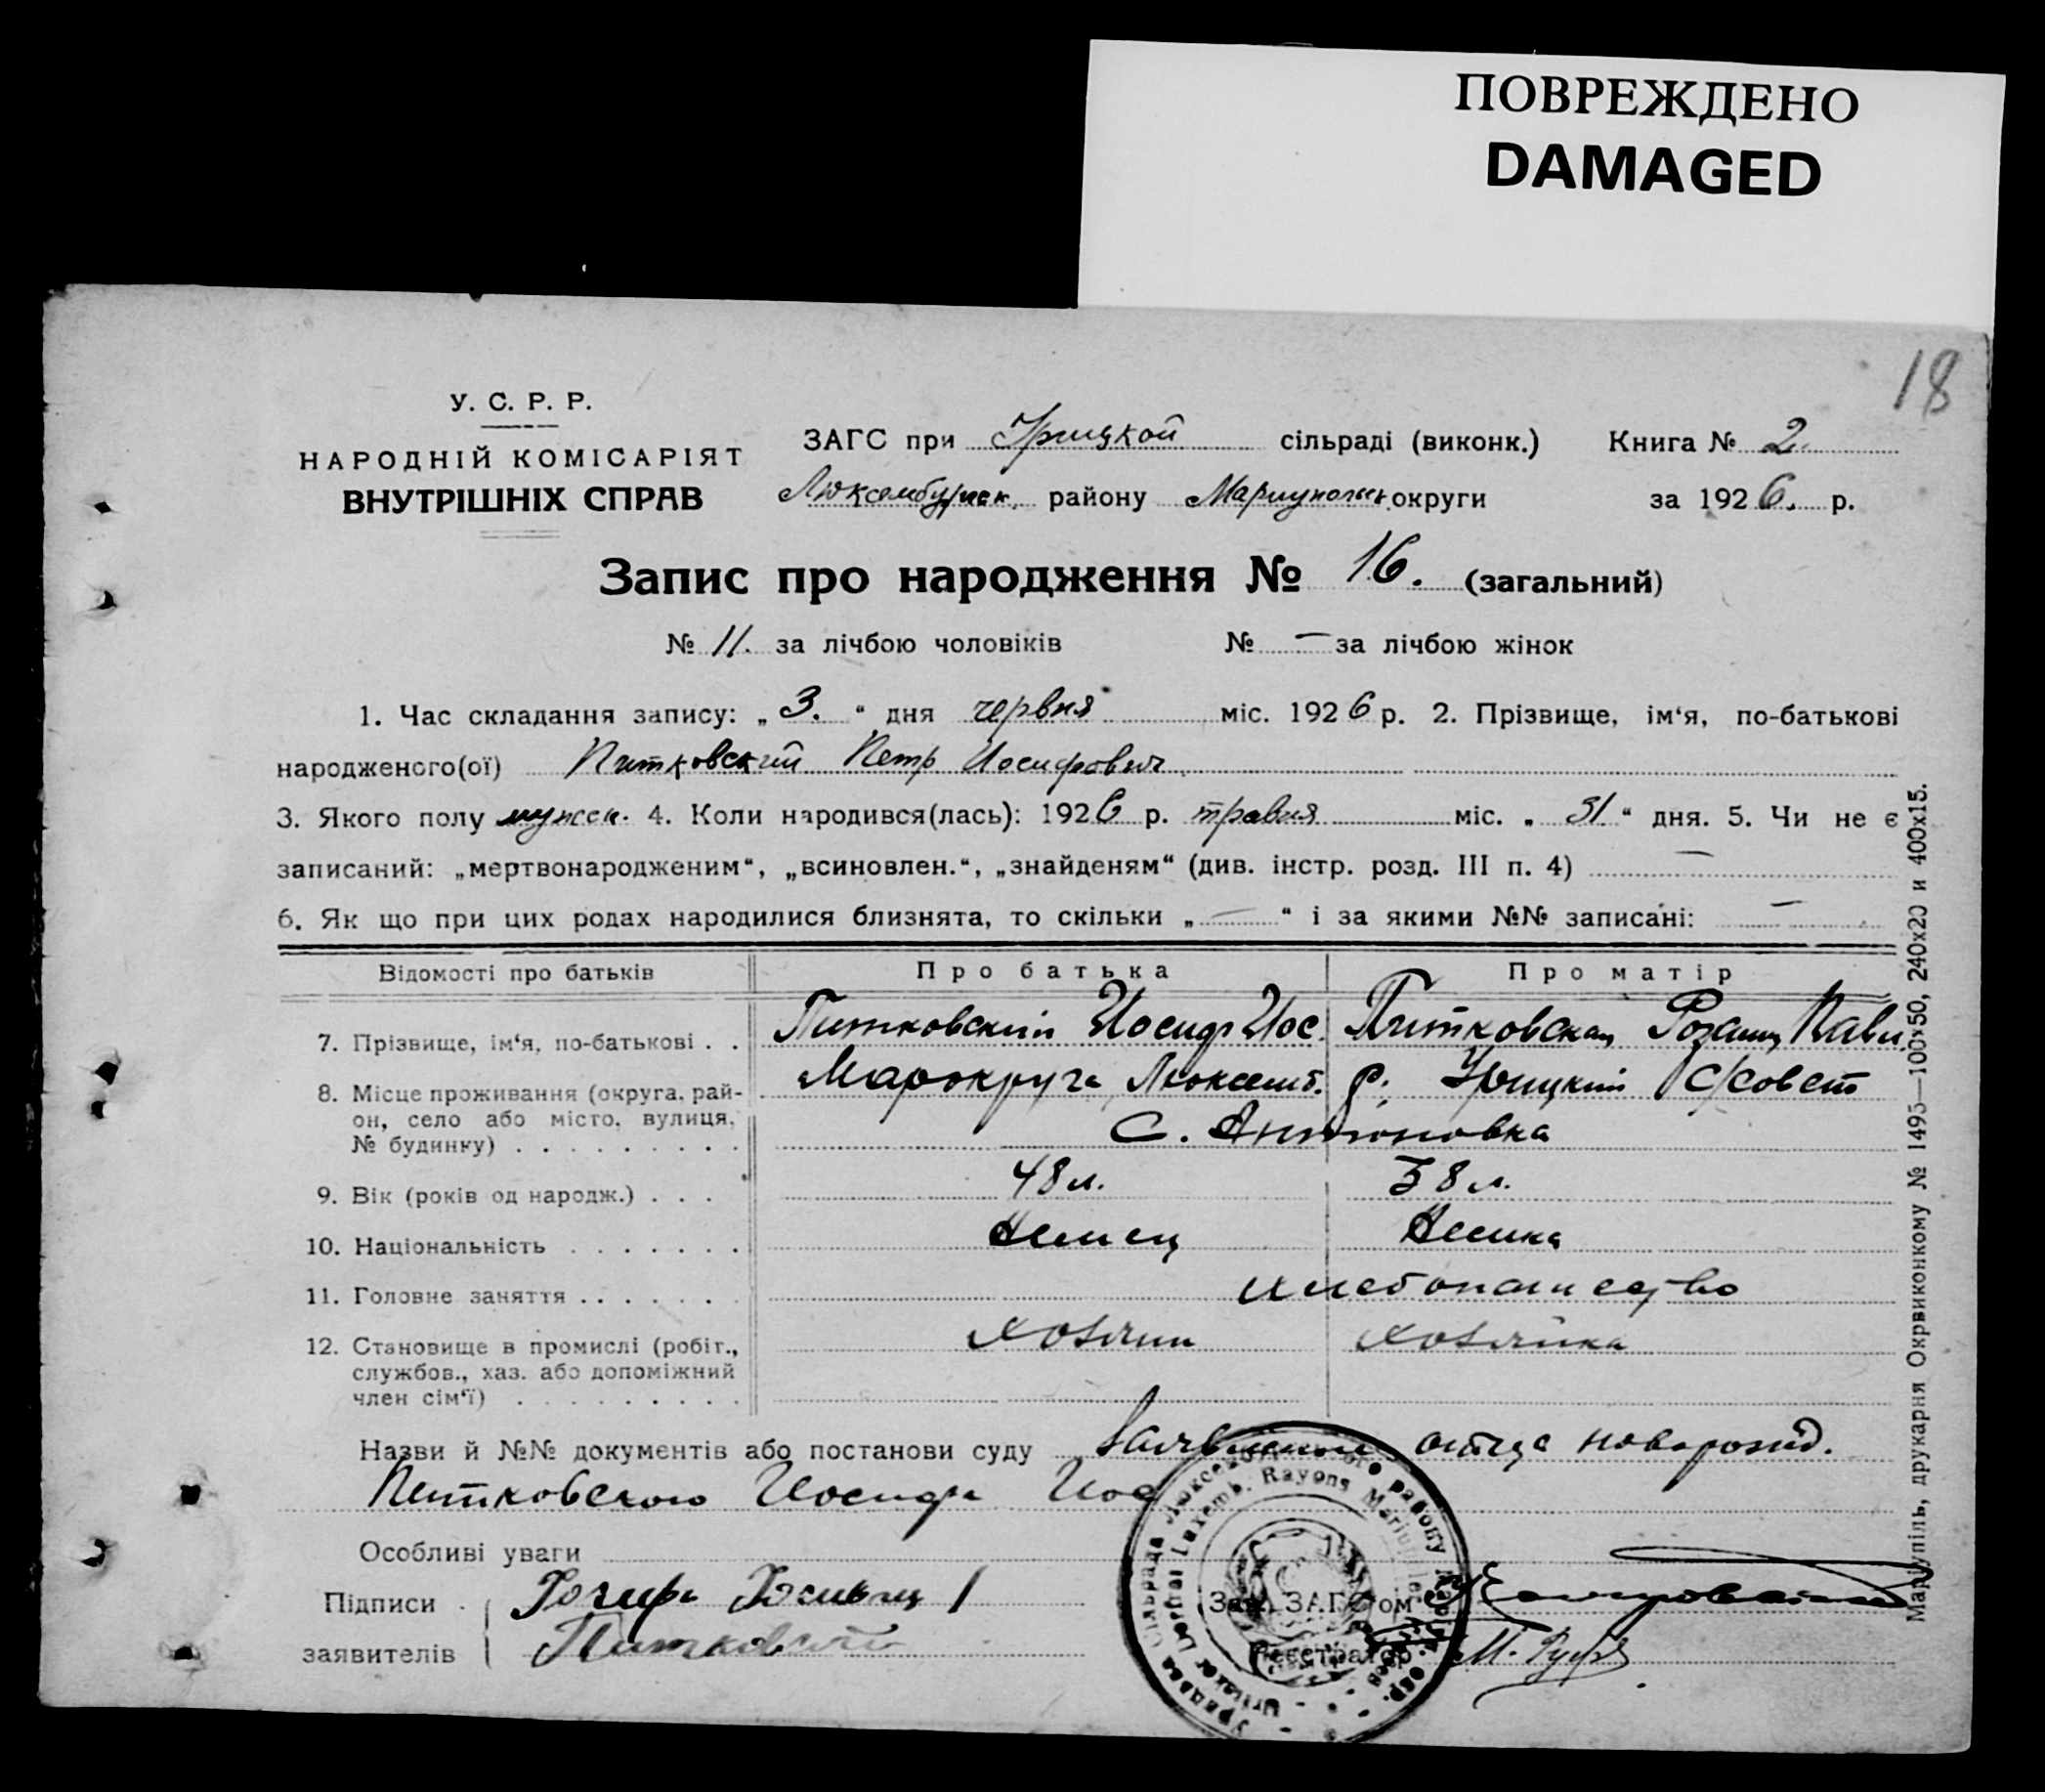 ПОВРЕЖДЕНО
DAMAGED
18
У. С. Р. Р.
НАРОДНІЙ КОМІСАРІЯТ
ВНУТРІШНІХ СПРАВ
ЗАГС при Урицкой сільраді (виконк.) Книга № 2
Люксембургск. району Мариупольск округи за 1926. р.
Запис про народження № 16. (загальний)
№ 11. за лічбою чоловіків № — за лічбою жінок
1. Час складання запису: „ 3. “ дня червня міс. 1926 р. 2. Прізвище, ім‘я, по-батькові
народженого(ої) Питковский Петр Иосифович
3. Якого полу мужск. 4. Коли народився(лась): 1926 р. травня міс. „ 31 “ дня. 5. Чи не є
записаний: „мертвонародженим“, „всиновлен.“, „знайденям“ (див. інстр. розд. III п. 4) —
6. Як що при цих родах народилися близнята, то скільки „ — “ і за якими №№ записані: —
Відомості про батьків Про батька Про матір
7. Прізвище, ім‘я, по-батькові . . Питковский Иосиф Иос. Питковская Розалия Павл.
8. Місце проживання (округа, рай- Мароокруга Люксемб. р. Урицкий С/совет
он, село або місто, вулиця, с. Антоновка
№ будинку) . . . . . . . . .
9. Вік (років од народж.) . . . 48 л. 38 л.
10. Національність . . . . . . . Немец Немка
11. Головне заняття . . . . . . хлебопашество
12. Становище в промислі (робіт., хозяин хозяйка
службов., хаз. або допоміжний
член сім‘ї) . . . . . . . . .
Назви й №№ документів або постанови суду Заявление отца новорожд.
Питковского Иосифа Иос
Особливі уваги
Підписи
заявителів Питковский
Зав. ЗАГС‘ом
Реєстратор М.
Luxemb. Rayons
Маріупіль, друкарня Окрвиконкому № 1495—100×50, 240×20 и 400×15.